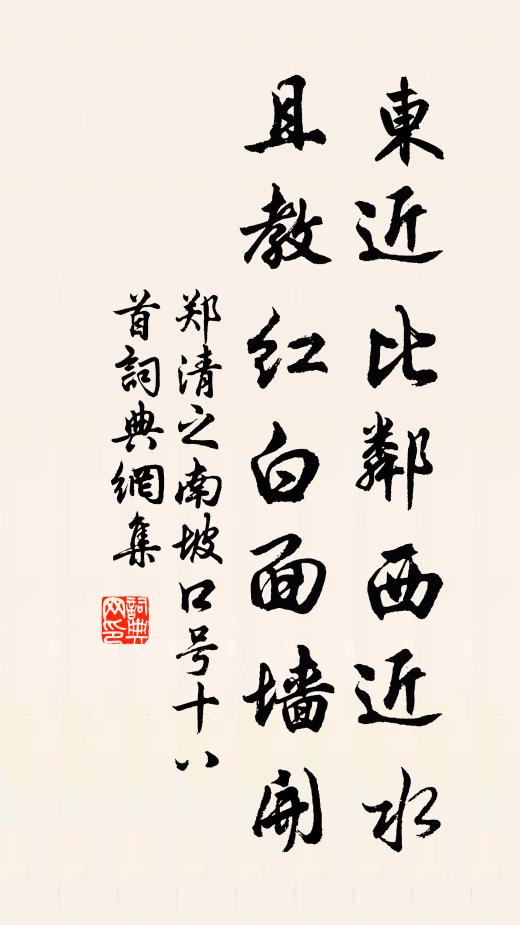 東近比鄰西近水
且教红白面墙開
郑清之南坡口号十八
首詞典網集
詞典网印